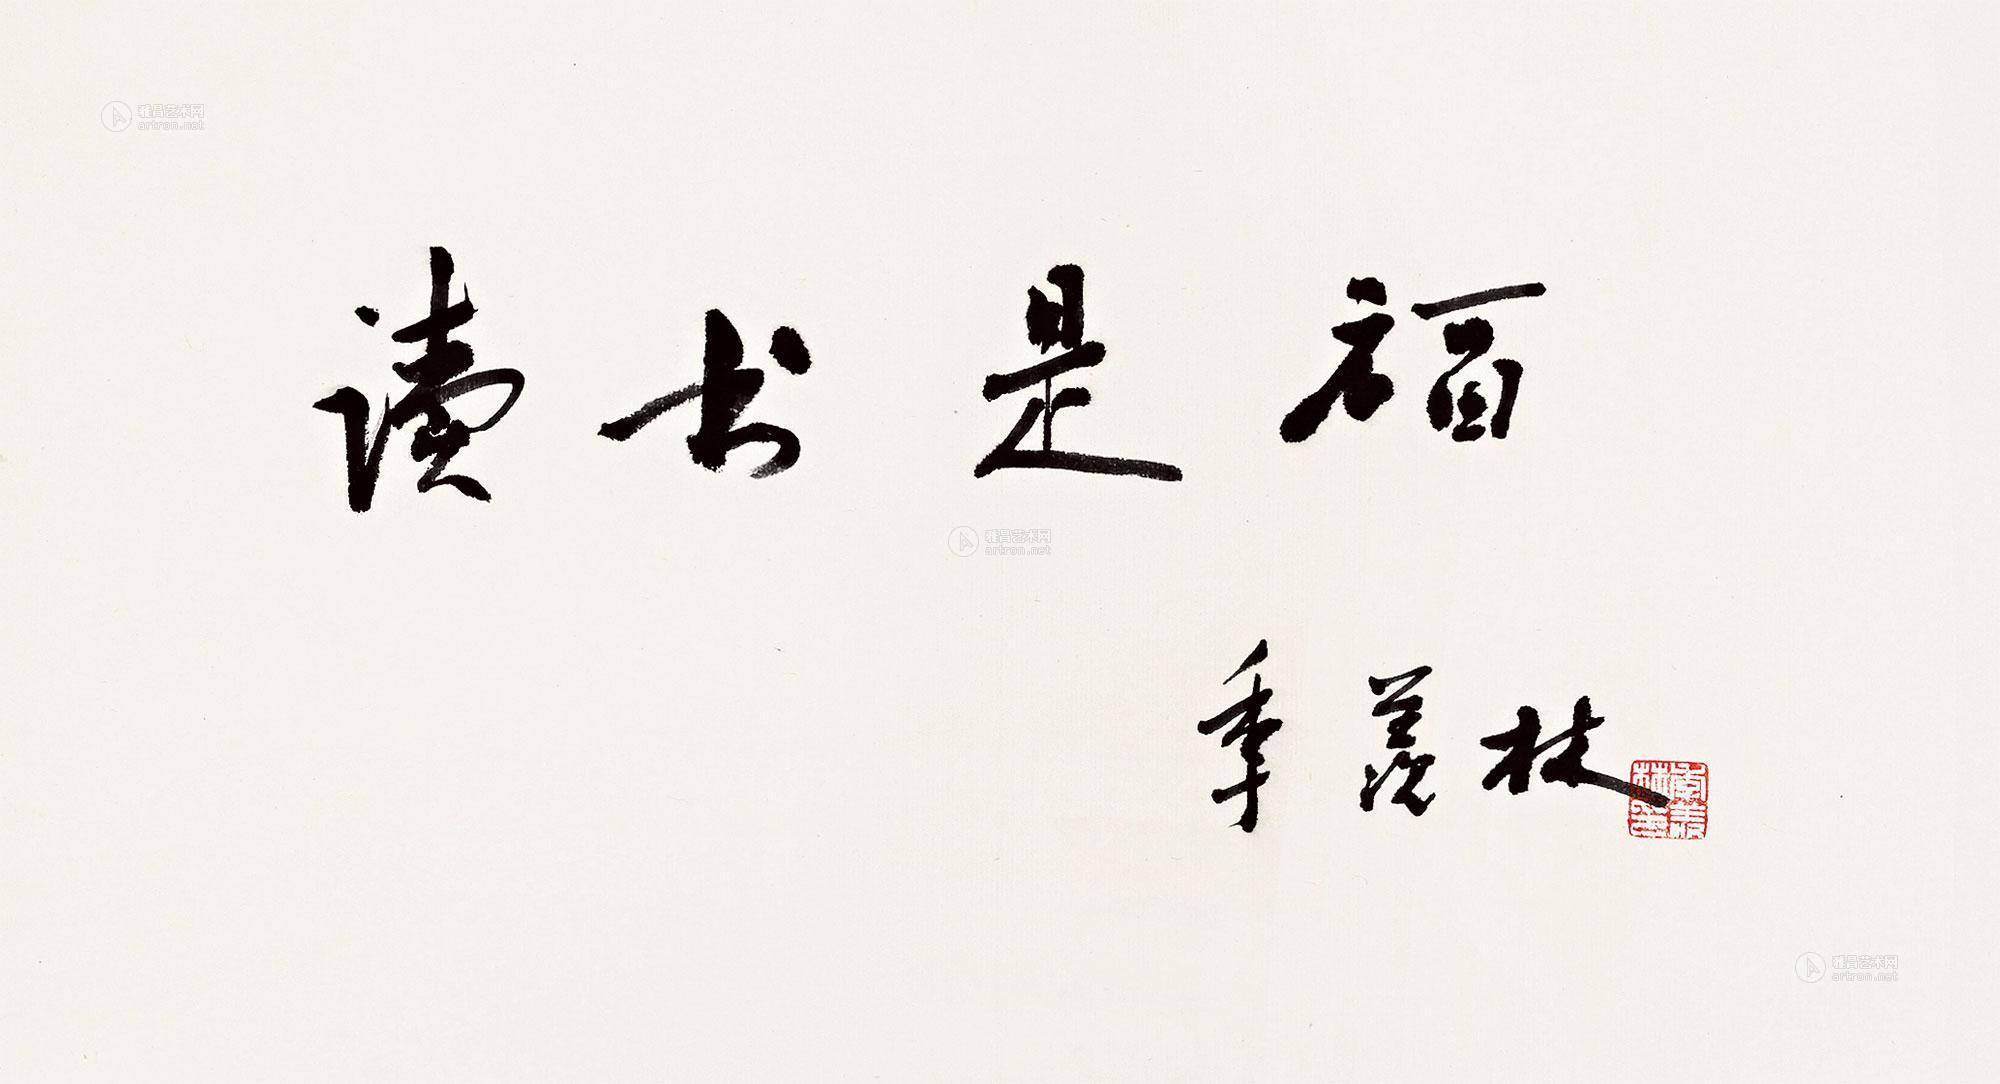 雅昌艺术网
artron.net
读书是福
雅昌艺术网
artron.net
季羡林
雅昌艺术网
artron.net